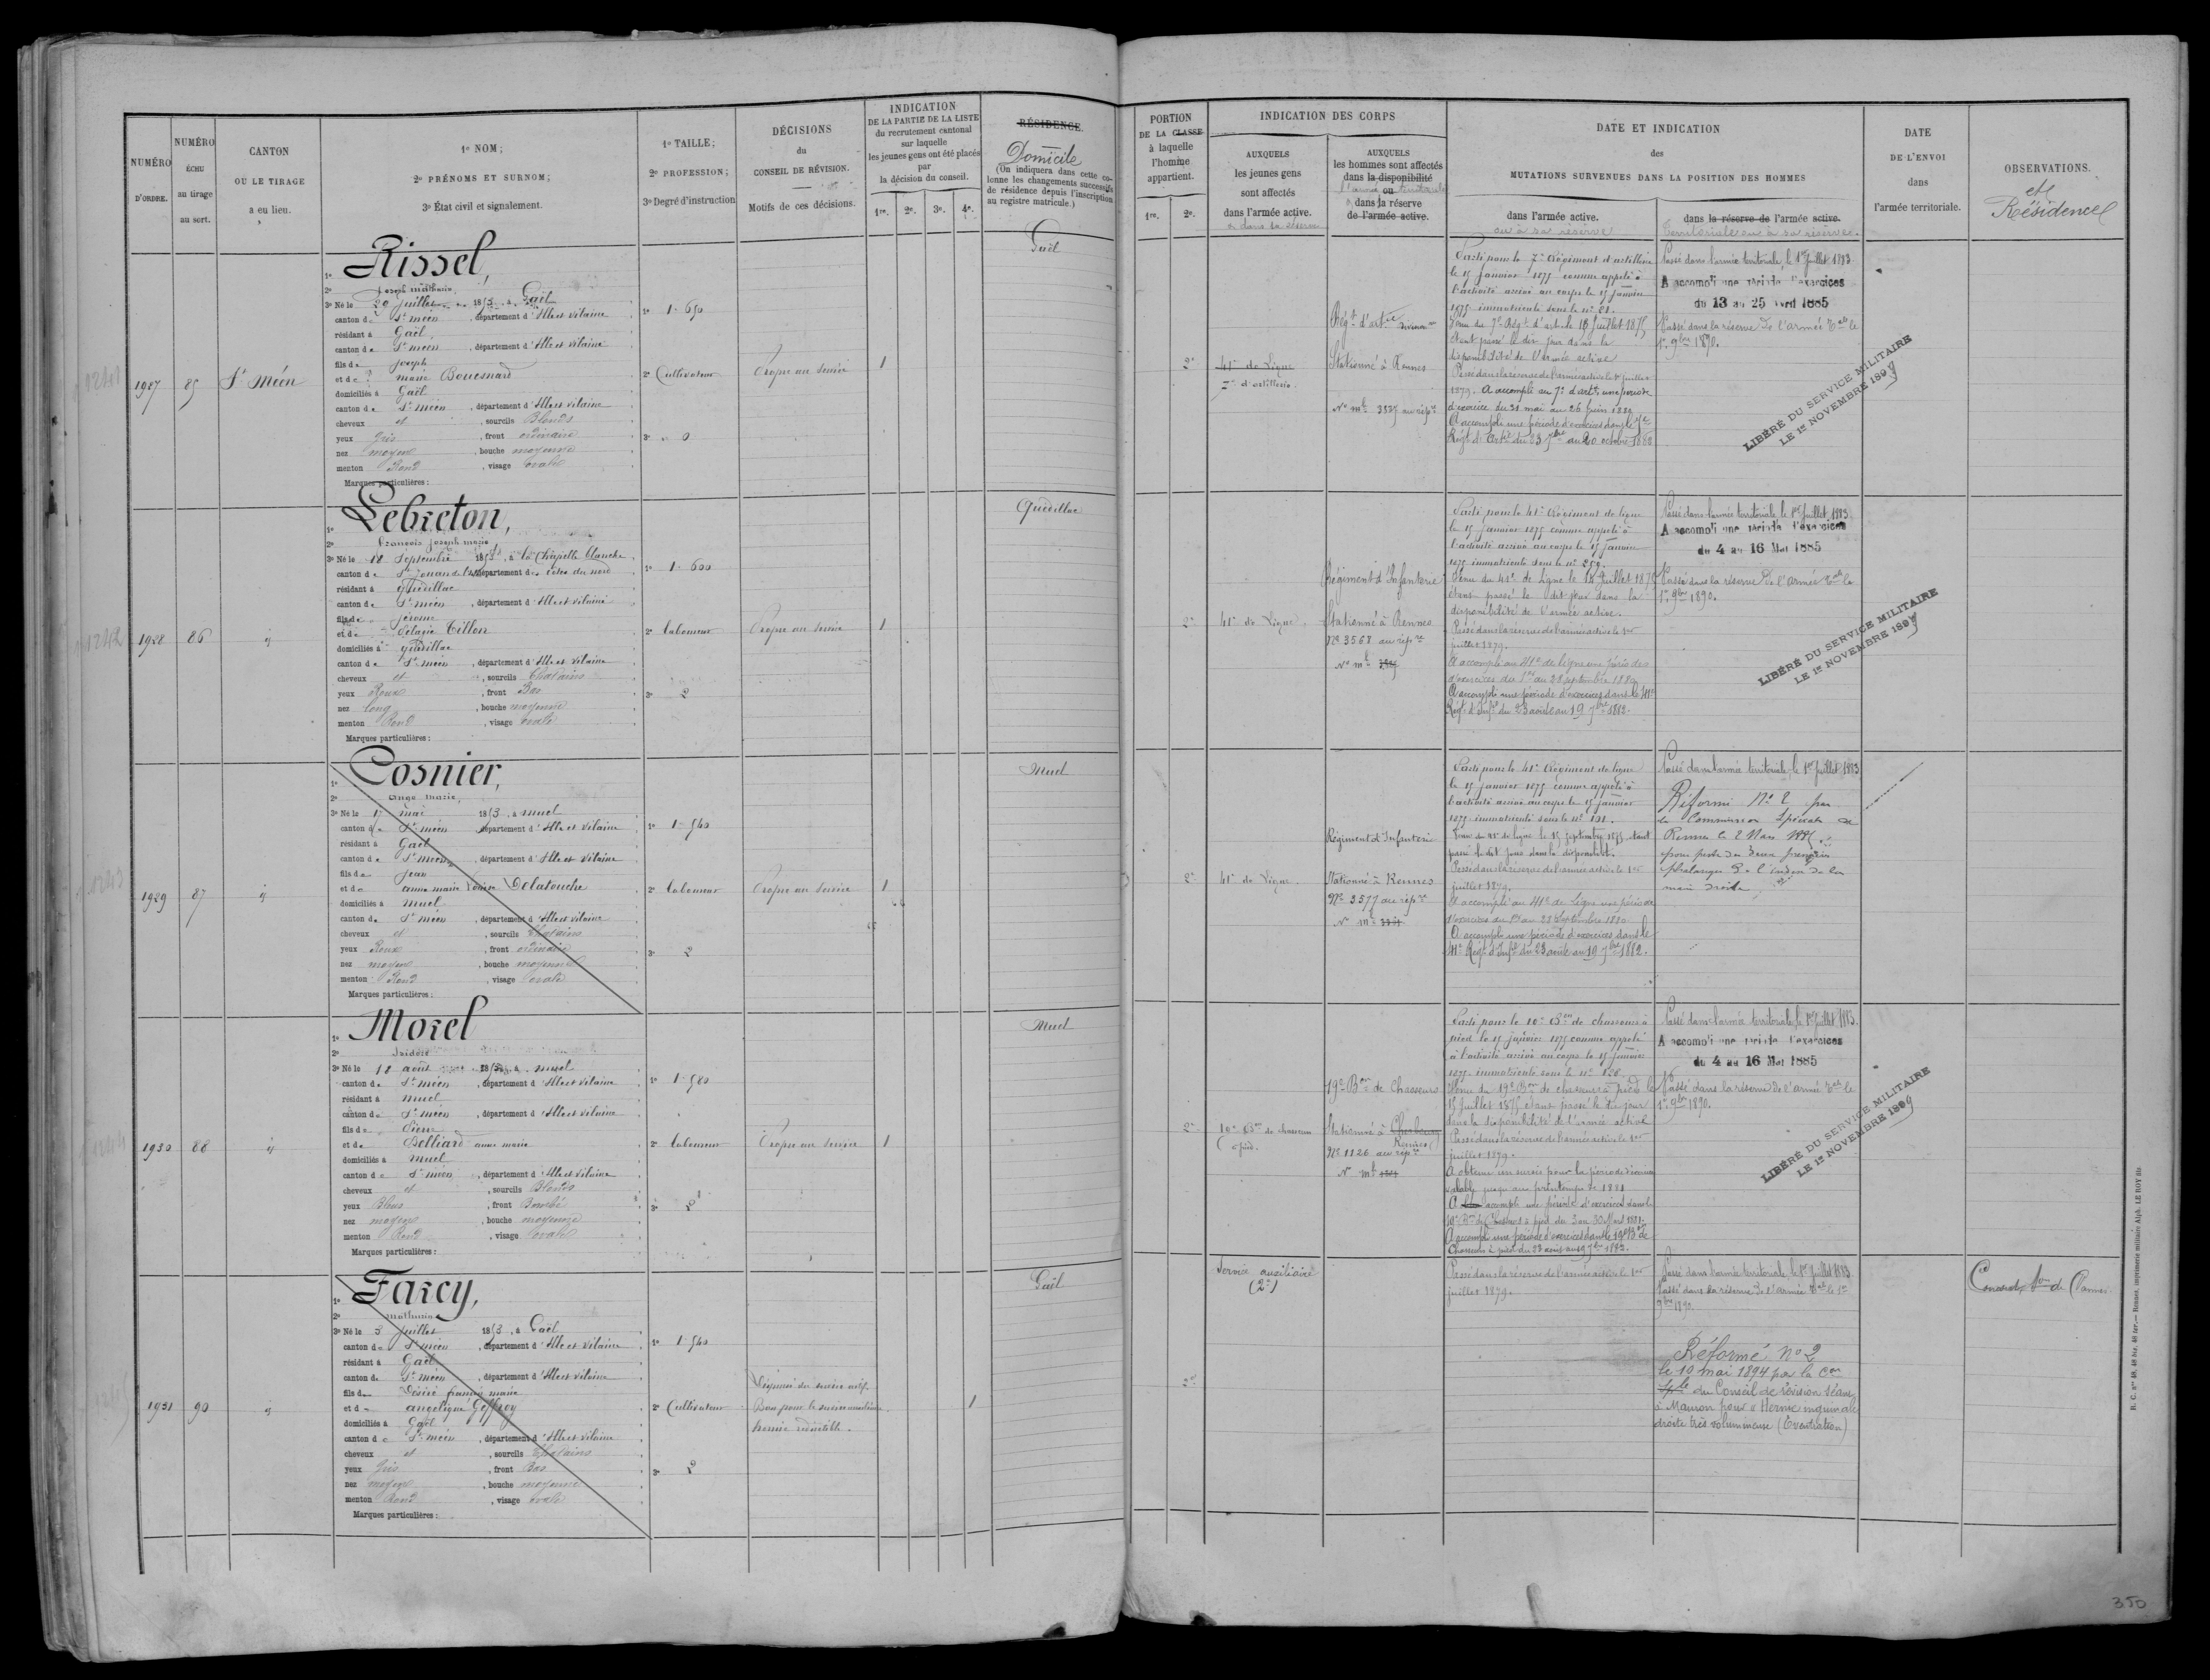 NUMÉRO
D'ORDRE.
NUMÉRO
ÉCHU
au tirage
au sort.
CANTON
OU LE TIRAGE
a eu lieu.
1º NOM;
2º PRÉNOMS ET SURNOM;
3º État civil et signalement.
1º TAILLE;
2º PROFESSION;
3º Degré d'instruction
DÉCISIONS
du
CONSEIL DE RÉVISION.
Motifs de ces décisions.
INDICATION
DE LA PARTIE DE LA LISTE
du recrutement cantonal
sur laquelle
les jeunes gens ont été placés
par
la décision du conseil.
1re. 2e. 3e. 4e.
RÉSIDENCE.
Domicile
(On indiquera dans cette co-
lonne les changements successifs
de résidence depuis l'inscription
au registre matricule.)
PORTION
DE LA CLASSE
à laquelle
l'homme
appartient.
1re. 2e.
INDICATION DES CORPS
AUXQUELS
les jeunes gens
sont affectés
dans l'armée active.
AUXQUELS
les hommes sont affectés
dans la disponibilité
ou
dans la réserve
de l'armée active.
DATE ET INDICATION
des
MUTATIONS SURVENUES DANS LA POSITION DES HOMMES
dans l'armée active.
ou à sa réserve
dans la réserve de l'armée active.
territoriale ou à sa réserve.
DATE
DE L'ENVOI
dans
l'armée territoriale.
OBSERVATIONS.
et
Résidence
1927 85 St Méen
1º Rissel,
2º Joseph mathurin,
3º Né le 20 juillet 1853, à Gaël
canton de St méen, département d'Ille et Vilaine
résidant à Gaël
canton de St méen, département d'Ille et Vilaine
fils de joseph
et de marie Bouesnard
domiciliés à Gaël
canton de St méen, département d'Ille et Vilaine
cheveux et, sourcils Blonds
yeux Gris, front ordinaire
nez moyen, bouche moyenne
menton Rond, visage ovale
Marques particulières:
1º 1. 650
2º Cultivateur
3º 0
Propre au service
1
Gaël
2e
41e de Ligne
7e d'artillerie.
Régt d'artie
Stationné à Rennes
No mle 3527 au répre
Parti pour le 7e Régiment d'artillerie
le 15 janvier 1875 comme appelé à
l'activité arrivé au corps le 15 janvier
1875 immatriculé sous le no 21.
disponibilité de l'armée active
Passé dans la réserve de l'armée active le 1er juillet
1879. A accompli au 7e d'artie une période
d'exercice du 31 mai au 26 juin 1880
A accompli une période d'exercices dans le 7e
Régt d'Artie du 23 7bre au 20 octobre 1882
Passé dans l'armée territoriale, le 1er Juillet 1883
A accompli une période d'exercices
du 13 au 25 Avril 1885
Passé dans la réserve de l'armée Tale le
1er 9bre 1890.
LIBÉRÉ DU SERVICE MILITAIRE
LE 1er NOVEMBRE 1899
1928 86 id
1º Lebreton,
2º François joseph marie
3º Né le 18 Septembre 1853, à la Chapelle blanche
canton de St jouan de l'Isle département des côtes du nord
résidant à Quédillac
canton de St méen, département d'Ille et Vilaine
fils de jérome
et de Pélagie Tillon
domiciliés à Quédillac
canton de St méen, département d'Ille et Vilaine
cheveux et, sourcils Chatains
yeux Roux, front Bas
nez long, bouche moyenne
menton Rond, visage ovale
Marques particulières:
1º 1. 600
2º laboureur
3º 2
Propre au service
1
Quédillac
2e
41e de Ligne.
Régiment d'Infanterie
Stationné à Rennes
No 3568 au répre
No mle
Parti pour le 41e Régiment de ligne
le 15 janvier 1875 comme appelé à
l'activité arrivé au corps le 15 janvier
1875 immatriculé sous le no 259.
Venu du 41e de Ligne le 15 Juillet 1875
étant passé le dit jour dans la
disponibilité de l'armée active.
Passé dans la réserve de l'armée active le 1er
juillet 1879.
A accompli au 41e de ligne une période
d'exercices du 1er au 28 septembre 1880
A accompli une période d'exercices dans le 41e
Régt d'Infie du 23 août au 19 7bre 1882.
Passé dans l'armée territoriale, le 1er Juillet 1883
A accompli une période d'exercices
du 4 au 16 Mai 1885
Passé dans la réserve de l'armée Tale le
1er 9bre 1890.
LIBÉRÉ DU SERVICE MILITAIRE
LE 1er NOVEMBRE 1899
1929 87 id
1º Cosnier,
2º Ange Marie,
3º Né le 17 mai 1853, à muel
canton de St méen, département d'Ille et Vilaine
résidant à Gaël
canton de St méen, département d'Ille et Vilaine
fils de jean
et de anne marie Louise Delatouche
domiciliés à muel
canton de St méen, département d'Ille et Vilaine
cheveux et, sourcils Chatains
yeux Roux, front ordinaire
nez moyen, bouche moyenne
menton Rond, visage ovale
Marques particulières:
1º 1. 540
2º laboureur
3º 2
Propre au service
1
Muel
2e
41e de Ligne.
Régiment d'Infanterie
Stationné à Rennes
No 3577 au répre
No mle
Parti pour le 41e Régiment de ligne
le 15 janvier 1875 comme appelé à
l'activité arrivé au corps le 15 janvier
1875 immatriculé sous le no 191.
Venu du 41e de ligne le 15 septembre 1875, étant
passé le dit jour dans la disponibilité.
Passé dans la réserve de l'armée active le 1er
juillet 1879.
A accompli au 41e de Ligne une période
d'exercices du 1er au 28 Septembre 1880
A accompli une période d'exercices dans le
41e Régt d'Infie du 23 août au 19 7bre 1882.
Passé dans l'armée territoriale, le 1er Juillet 1883
Réformé No 2 par
la Commission Spéciale de
Rennes le 2 Mars
pour perte des deux premières
phalanges de l'index de la
main droite
1930 88 id
1º Morel
2º Isidore
3º Né le 18 août 1853, à muel
canton de St méen, département d'Ille et Vilaine
résidant à muel
canton de St méen, département d'Ille et Vilaine
fils de Pierre
et de Belliard anne marie
domiciliés à muel
canton de St méen, département d'Ille et Vilaine
cheveux et, sourcils Blonds
yeux Bleus, front Bombé
nez moyen, bouche moyenne
menton Rond, visage ovale
Marques particulières:
1º 1. 580
2º laboureur
3º 2
Propre au service
1
Muel
2e
10e Bon de chasseurs
à pied.
19e Bon de Chasseurs
Stationné à Cherbourg
Rennes
No 1126 au répre
No mle
Parti pour le 10e Bon de chasseurs à
pied le 15 janvier 1875 comme appelé
à l'activité arrivé au corps le 15 janvier
1875 immatriculé sous le no 828.
Venu du 19e Bon de chasseurs à pied le
15 Juillet 1875 étant passé le dit jour
dans la disponibilité de l'armée active
Passé dans la réserve de l'armée active le 1er
juillet 1879.
A obtenu un sursis pour la période d'exercices
valable jusqu'au printemps de 1881
A accompli une période d'exercices dans le
10e Bon de Chasseurs à pied du 3 au 30 Mars 1881.
A accompli une période d'exercices dans le 19e Bon de
Chasseurs à pied du 23 août au 19 7bre 1882.
Passé dans l'armée territoriale, le 1er Juillet 1883.
A accompli une période d'exercices
du 4 au 16 Mai 1885
Passé dans la réserve de l'armée Tale le
1er 9bre 1890.
LIBÉRÉ DU SERVICE MILITAIRE
LE 1er NOVEMBRE 1899
1931 90 id
1º Farcy,
2º mathurin
3º Né le 3 juillet 1853, à Gaël
canton de St méen, département d'Ille et Vilaine
résidant à Gaël
canton de St méen, département d'Ille et Vilaine
fils de Désiré françois marie
et de angélique Geffroy
domiciliés à Gaël
canton de St méen, département d'Ille et Vilaine
cheveux et, sourcils Chatains
yeux Gris, front Bas
nez moyen, bouche moyenne
menton Rond, visage ovale
Marques particulières:
1º 1. 540
2º Cultivateur
3º 2
Dispensé du service actif.
Bon pour le service auxiliaire
hernie réductible.
1
Gaël
2e
Service auxiliaire
(2e)
Passé dans la réserve de l'armée active le 1er
juillet 1879.
Passé dans l'armée territoriale le 1er Juillet 1883
Passé dans la réserve de l'armée Tale le 1er
9bre 1890.
Réformé No 2
le 10 mai 1894 par la Con
Sple du Conseil de révision séant
à Mauron pour « Hernie inguinale
droite très volumineuse (Éventration)
de Vannes.
R. C. nos 48, 48 bis, 48 ter. — Rennes, imprimerie militaire Alph. LE ROY fils
350